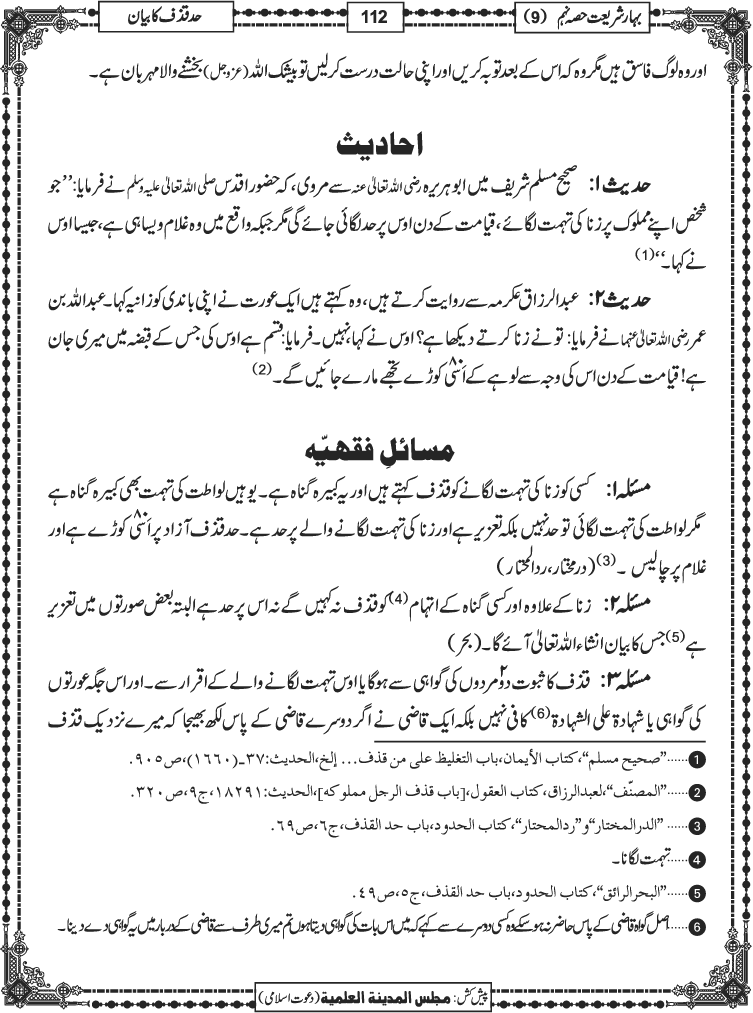 بہارشریعت حصہ نہم (9)
112
حد قذف کا بیان
اور وہ لوگ فاسق ہیں مگر وہ کہ اس کے بعد توبہ کریں اور اپنی حالت درست کرلیں تو بیشک اللہ (عزوجل) بخشنے والا مہربان ہے۔
احادیث
حدیث ۱: صحیح مسلم شریف میں ابوہریرہ رضی اللہ تعالیٰ عنہ سے مروی، کہ حضور اقدس صلی اللہ تعالیٰ علیہ وسلم نے فرمایا: ’’جو
شخص اپنے مملوک پر زنا کی تہمت لگائے، قیامت کے دن اوس پر حد لگائی جائے گی مگر جبکہ واقع میں وہ غلام ویسا ہی ہے، جیسا اوس
نے کہا۔‘‘(1)
حدیث ۲: عبدالرزاق عکرمہ سے روایت کرتے ہیں، وہ کہتے ہیں ایک عورت نے اپنی باندی کو زانیہ کہا۔ عبداللہ بن
عمر رضی اللہ تعالیٰ عنہما نے فرمایا: تو نے زنا کرتے دیکھا ہے؟ اوس نے کہا، نہیں۔ فرمایا: قسم ہے اوس کی جس کے قبضہ میں میری جان
ہے! قیامت کے دن اس کی وجہ سے لوہے کے اَسّی ۸۰ کوڑے تجھے مارے جائیں گے۔(2)
مسائلِ فقہیّہ
مسئلہ ۱: کسی کو زنا کی تہمت لگانے کو قذف کہتے ہیں اور یہ کبیرہ گناہ ہے۔ یوہیں لواطت کی تہمت بھی کبیرہ گناہ ہے
مگر لواطت کی تہمت لگائی تو حد نہیں بلکہ تعزیر ہے اور زنا کی تہمت لگانے والے پر حد ہے۔ حد قذف آزاد پر اَسّی ۸۰ کوڑے ہے اور
غلام پر چالیس ۔(3) (درمختار، ردالمحتار)
مسئلہ ۲: زنا کے علاوہ اور کسی گناہ کے اتہام(4) کو قذف نہ کہیں گے نہ اس پر حد ہے البتہ بعض صورتوں میں تعزیر
ہے(5) جس کا بیان انشاء اللہ تعالیٰ آئے گا۔ (بحر)
مسئلہ ۳: قذف کا ثبوت دو ۲ مردوں کی گواہی سے ہوگا یا اوس تہمت لگانے والے کے اقرار سے۔ اور اس جگہ عورتوں
کی گواہی یا شہادۃ علی الشہادۃ(6) کافی نہیں بلکہ ایک قاضی نے اگر دوسرے قاضی کے پاس لکھ بھیجا کہ میرے نزدیک قذف
1......”صحيح مسلم“، كتاب الأيمان، باب التغليظ على من قذف... إلخ، الحديث: ٣٧۔(١٦٦٠)، ص٩٠٥.
2......”المصنّف“، لعبدالرزاق، كتاب العقول، [باب قذف الرجل مملوكه]، الحديث: ١٨٢٩١، ج٩، ص٣٢٠.
3...... ”الدرالمختار“ و ”ردالمحتار“، كتاب الحدود، باب حد القذف، ج٦، ص٦٩.
4......تہمت لگانا۔
5......”البحرالرائق“، كتاب الحدود، باب حد القذف، ج٥، ص٤٩.
6......اصل گواہ قاضی کے پاس حاضر نہ ہو سکے وہ کسی دوسرے سے کہے کہ میں اس بات کی گواہی دیتا ہوں تم میری طرف سے قاضی کے دربار میں یہ گواہی دے دینا۔
پیش کش: مجلس المدینة العلمیة (دعوت اسلامی)